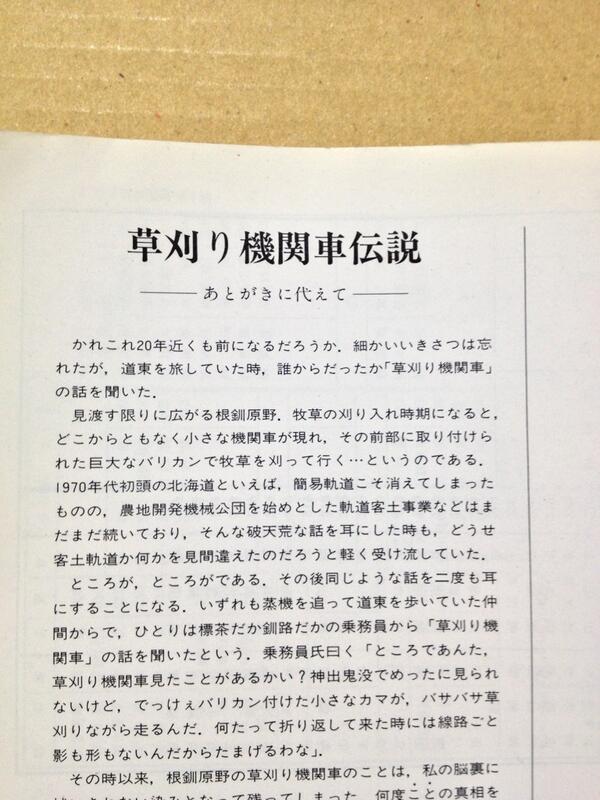 草刈り機関車伝説
あとがきに代えて
かれこれ20年近くも前になるだろうか．細かいいきさつは忘
れたが，道東を旅していた時，誰からだったか「草刈り機関車」
の話を聞いた．
見渡す限りに広がる根釧原野．牧草の刈り入れ時期になると，
どこからともなく小さな機関車が現れ，その前部に取り付けら
れた巨大なバリカンで牧草を刈って行く…というのである．
1970年代初頭の北海道といえば，簡易軌道こそ消えてしまった
ものの，農地開発機械公団を始めとした軌道客土事業などはま
だまだ続いており，そんな破天荒な話を耳にした時も，どうせ
客土軌道か何かを見間違えたのだろうと軽く受け流していた．
ところが，ところがである．その後同じような話を二度も耳
にすることになる．いずれも蒸機を追って道東を歩いていた仲
間からで，ひとりは標茶だか釧路だかの乗務員から「草刈り機
関車」の話を聞いたという．乗務員氏曰く「ところであんた，
草刈り機関車見たことがあるかい？神出鬼没でめったに見られ
ないけど，でっけぇバリカン付けた小さなカマが，バサバサ草
刈りながら走るんだ．何たって折り返して来た時には線路ごと
影も形もないんだからたまげるわな」．
その時以来，根釧原野の草刈り機関車のことは，私の脳裏に
染みとなって残ってしまった．何度ことの真相を